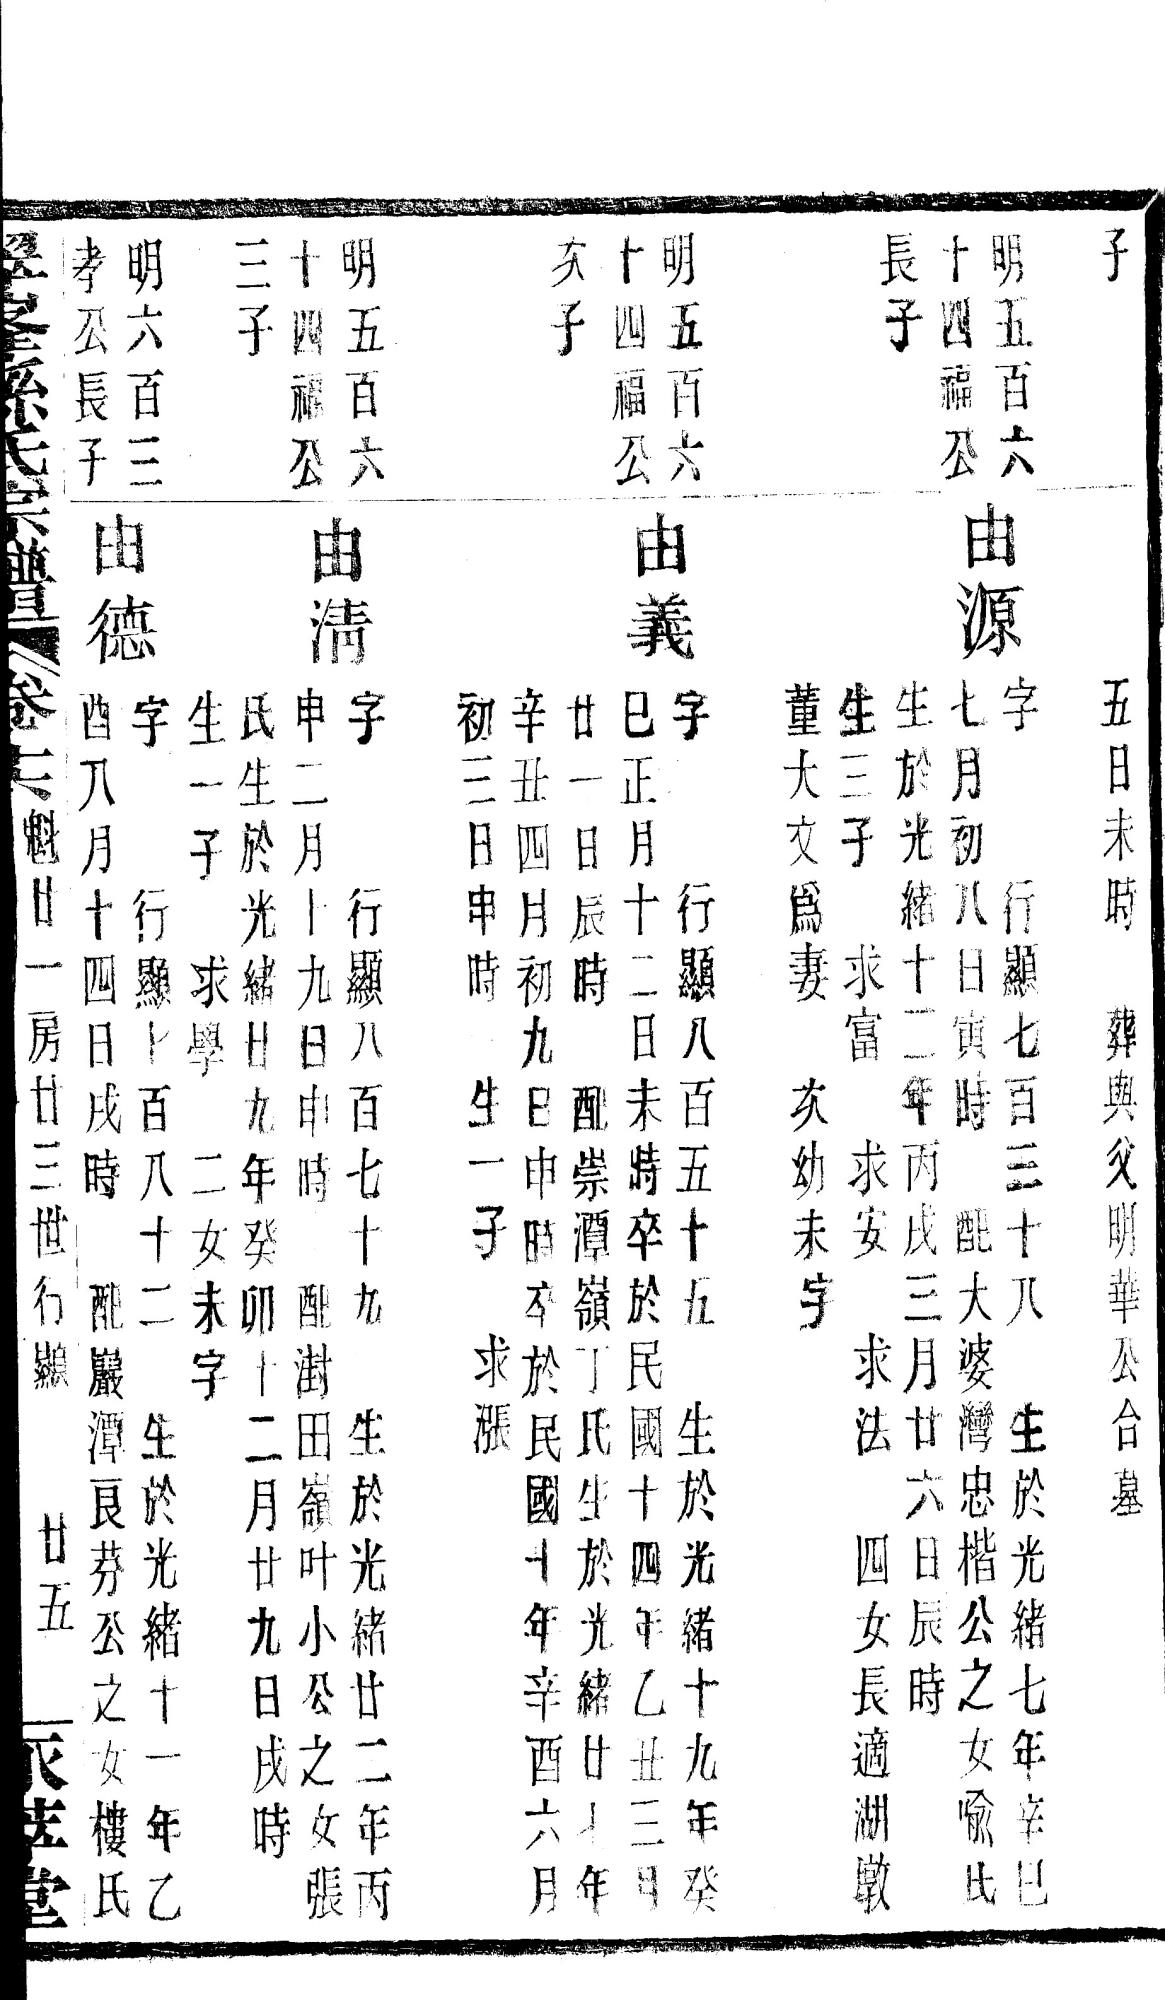 子
五日未時　葬與父明華公合墓
明五百六
十四福公
長子
由源
字　　行顯七百三十八　生於光緒七年辛巳
七月初八日寅時　配大婆灣忠楷公之女喻氏
生於光緒十二年丙戌三月廿六日辰時
生三子　求富　求安　求法　四女長適湖墩
董大文爲妻　次幼未字
明五百六
十四福公
次子
由義
字　　行顯八百五十五　生於光緒十九年癸
巳正月十二日未時卒於民國十四年乙丑三月
廿一日辰時　配崇潭嶺丁氏生於光緒廿七年
辛丑四月初九日申時卒於民國十年辛酉六月
初三日申時　生一子　求漲
明五百六
十四福公
三子
由清
字　　行顯八百七十九　生於光緒廿二年丙
申二月十九日申時　配澍田嶺叶小公之女張
氏生於光緒廿九年癸卯十二月廿九日戌時
生一子　求學　二女未字
明六百三
孝公長子
由德
字　　行顯七百八十二　生於光緒十一年乙
酉八月十四日戌時　配巖潭良芬公之女樓氏
孫氏宗譜　卷十六　魁廿一房廿三世行顯　廿五